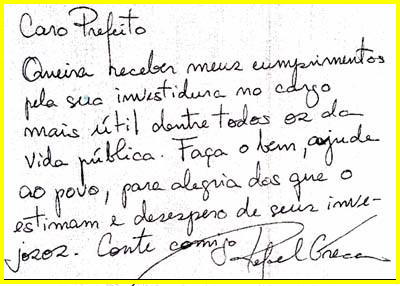 Caro Prefeito
Queira receber meus cumprimentos
pela sua investidura no cargo
mais útil dentre todos os da
vida pública. Faça o bem, ajude
ao povo, para alegria dos que o
estimam e desespero de seus inve-
josos. Conte comigo Rafael Greca